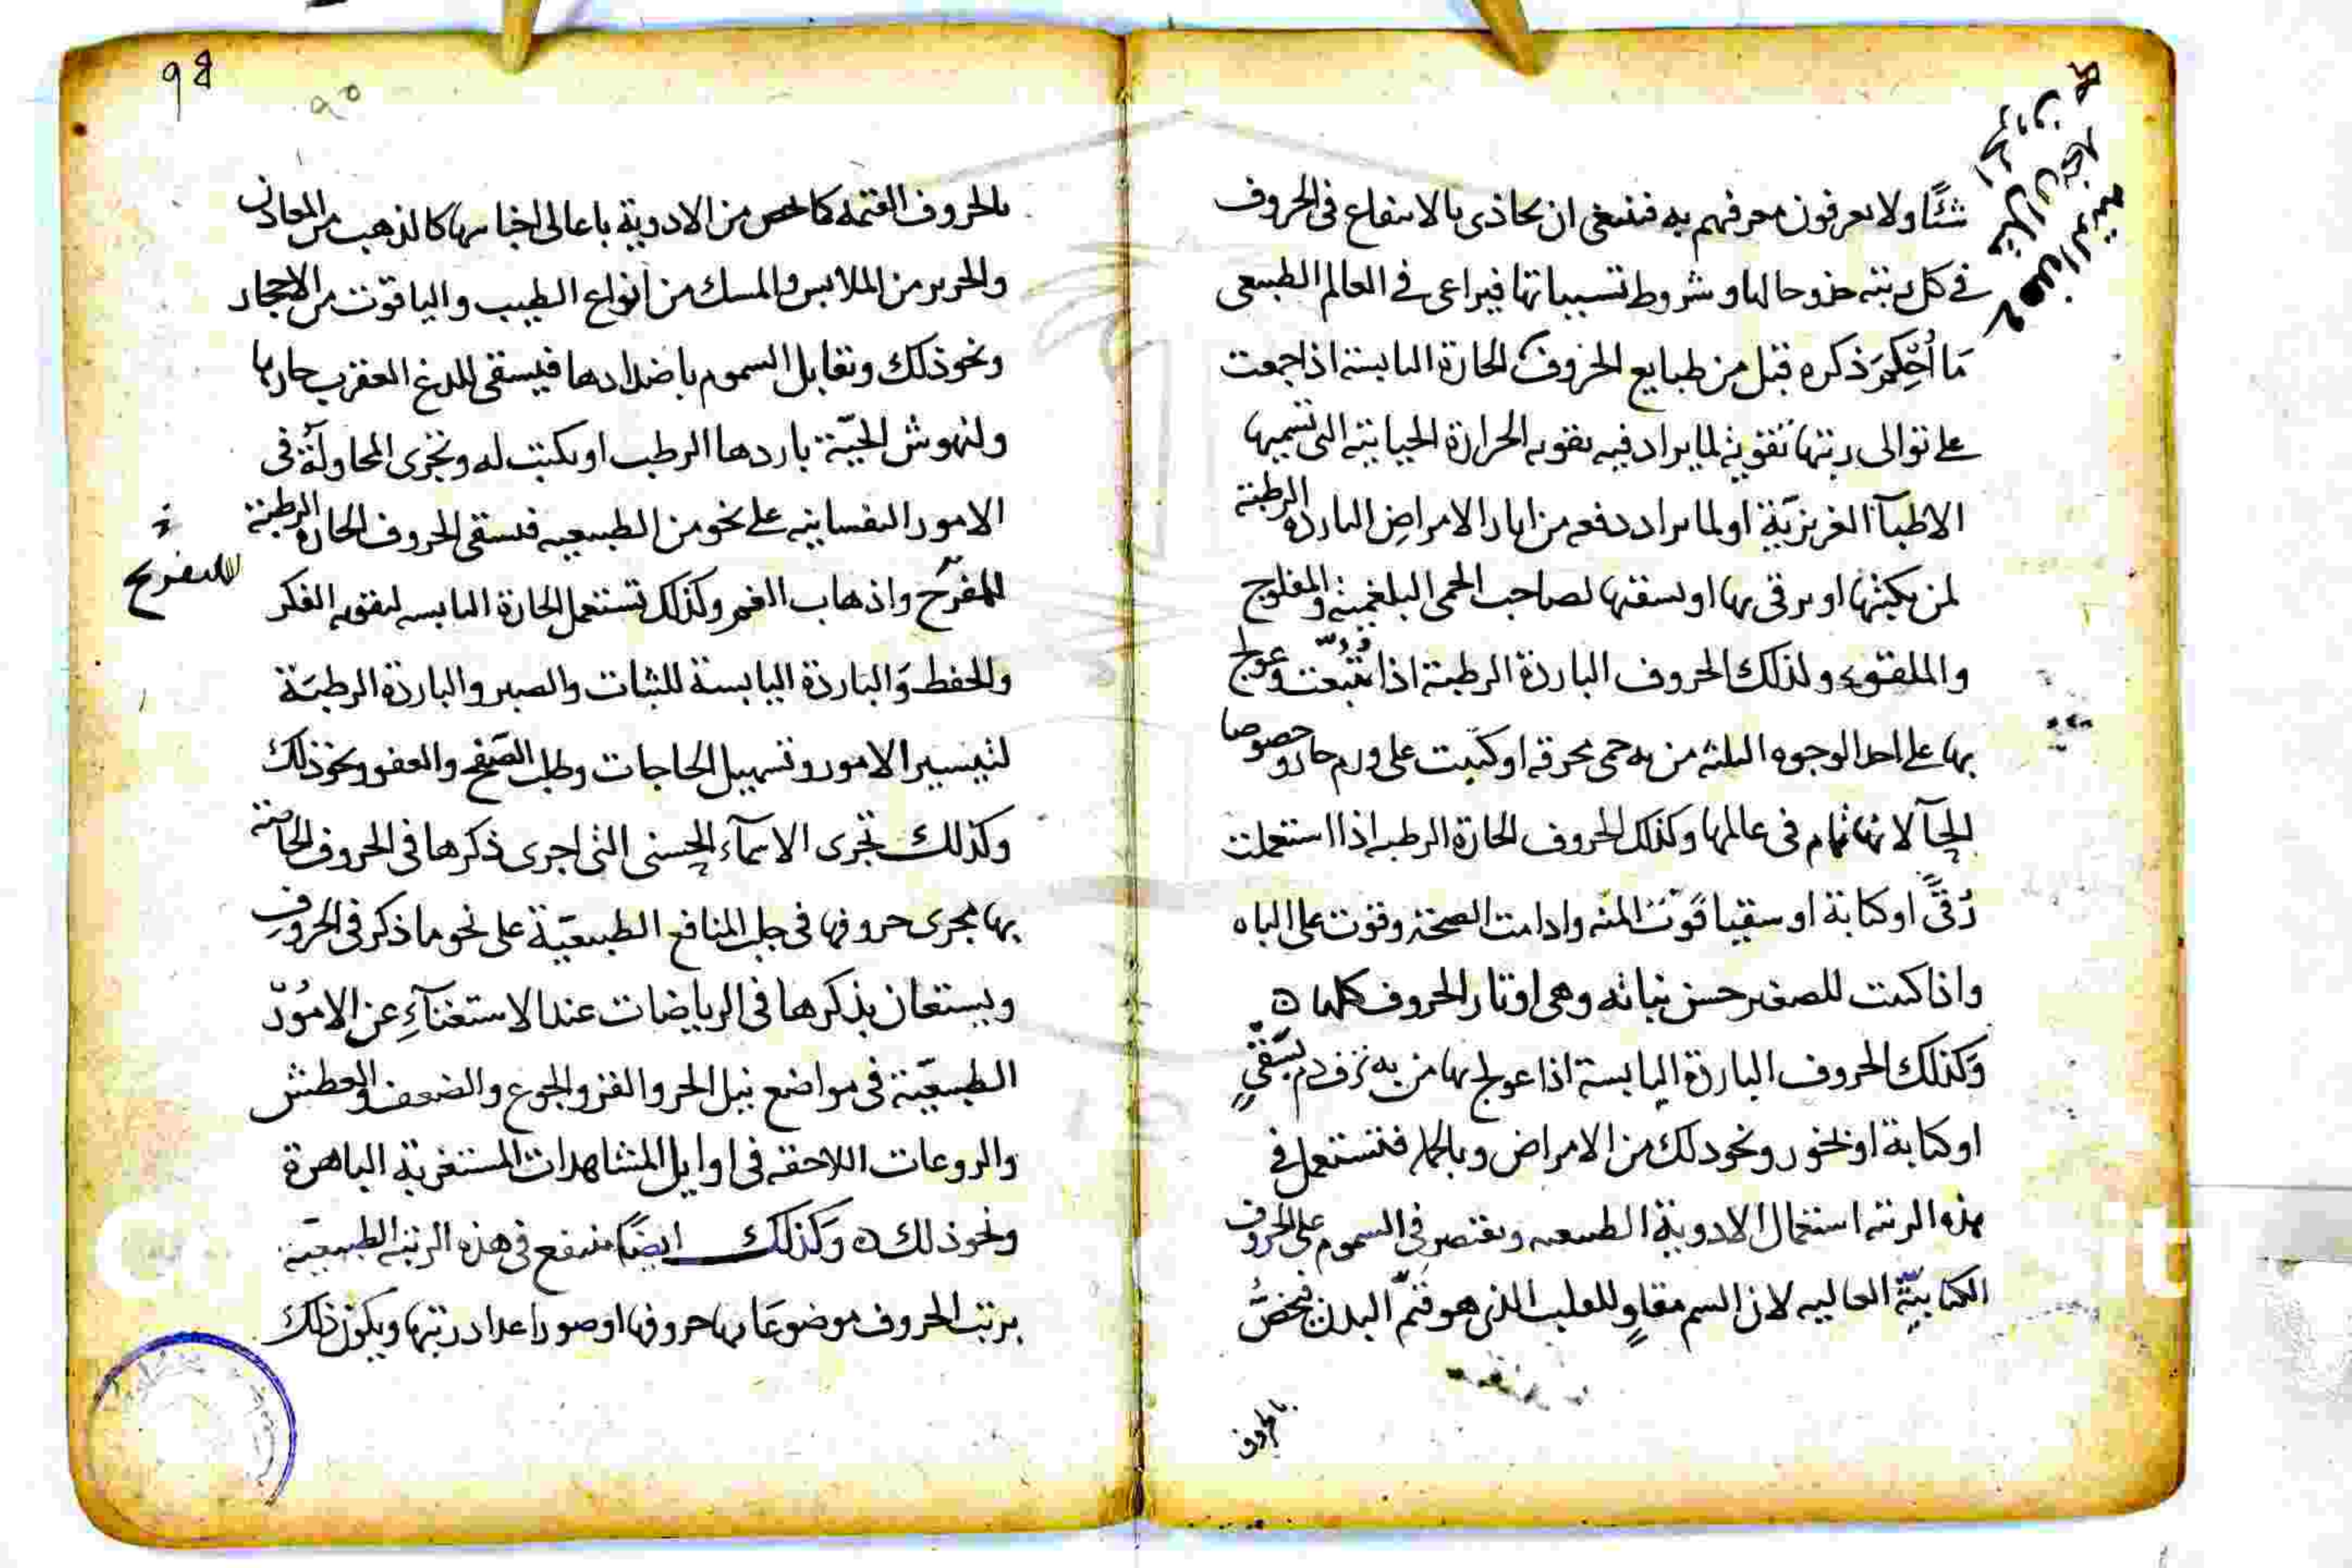 شئًا ولا يعرفون معرفتهم به فينبغى ان يحاذى بالانتفاع فى الحروف
فى كل رتبته حذو حالها وشروط تسبيباتها فيراعى فى العالم الطبيعى
مَا اُحْكِمَ ذكره قبل من طبايع الحروف فالحارة اليابسة اذا جمعت
على توالى رتبتها تقوية لما يراد فيه تقويه الحرارة الحياتيه التى تسميها
الاطبآ الغريزيّة او لما يراد دفعه من اثار الامراض البارده الرطبة
لمن يكتبها او يرقى بها او يسقيها لصاحب الحمى البلغمية والمفلوج
والملقوء ولذلك الحروف الباردة الرطبة اذا تتبّعت وعولج
بها على احد الوجوه الثلثه من به حمى محرقه او كتبت على ورم حار وخصوصا
الحآ لانها فى عالمها وكذلك الحروف الحارة الرطبه اذا استعملت
رُقىً او كتابة او سقيا قوّت المنه وادامت الصحة وقوت على الباه
واذا كتبت للصغير حسن نباته وهى اوتار الحروف كلها ه
وَكذلك الحروف الباردة اليابسة اذا عولج بها من به نزف دم بسَقْىٍ
او كتابة او بخور ونحو ذلك من الامراض وبالجمله فتستعمل فى
هذه الرتبه استعمال الادوية الطبيعيه ويقتصر فى السموم على الحروف
الكتابيّة العاليه لان السم مقاوٍ للقلب الذى هو قيّم البدن فيخصّ
بالحروف
98
90
بالحروف القيّمه كما يخص من الادوية باعالى اجناسها كالذهب من المعادن
والحرير من الملابس والمسك من انواع الطيب والياقوت من الاحجار
ونحو ذلك وتقابل السموم باضدادها فيسقى للدغ العقرب حارها
ولنهوش الحيّة باردها الرطب او يكتب له وتجرى المحاولة فى
الامور النفسانيه على نحو من الطبيعيه فيسقى الحروف الحارة الرطبة
للمفرّح واذهاب الغم وكذلك تستعمل الحارة اليابسه لتقويه الفكر
للتفريح
والحفظ وَالباردة اليابسة للثبات والصبر والباردة الرطبَة
لتيسير الامور وتسهيل الحاجات وطلب الصّفح والعفو ونحو ذلك
وكذلك تجرى الاسمآء الحسنى التى اجرى ذكرها فى الحروف الخاصة
بها مجرى حروفها فى جلب المنافع الطبيعيّة على نحو ما ذكر فى الحروف
ويستعان بذكرها فى الرياضات عند الاستغنآءِ عن الامُور
الطبيعيّة فى مواضع نيل الحر والقر والجوع والضعف والعطش
والروعات اللاحقه فى اوايل المشاهدات المستغربة الباهرة
ونحو ذلك ه وَكذلك ايضًا ينتفع فى هذه الرتبه الطبيعيّة
برتب الحروف موضوعَا بها حروفها او صور اعداد رتبها ويكون ذلك